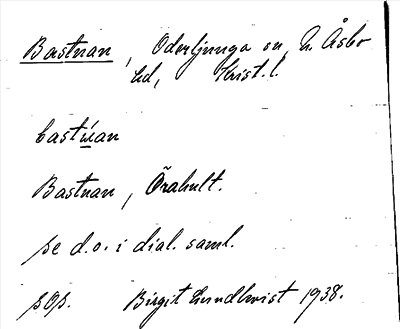 Bastuan, Oderljunga sn, N. Åsbo
hd, Krist. l.
bastu̍an
Bastuan, Örahult.
se d.o. i dial. saml.
sgs. Birgit Lundkvist 1938.